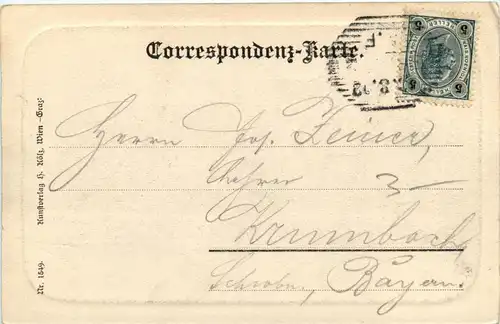 Correspondenz-Karte.
Herrn Jos.
Lehrer
Krumbach,
Schwaben, Bayern.
Kunstverlag H. Kölz, Wien-Graz
Nr. 1549.
5 5
5 5